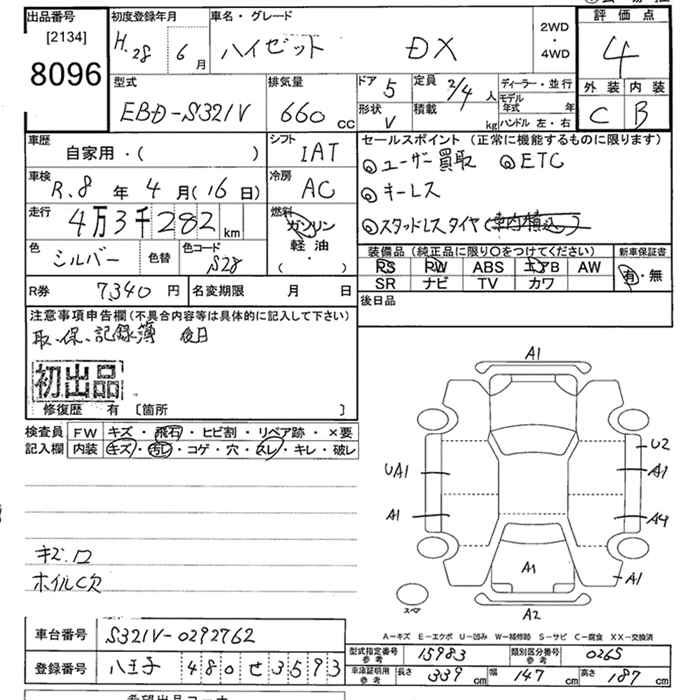 出品番号 初度登録年月 車名・グレード 2WD・4WD 評価点
[2134] H.28 6月 ハイゼット DX 4
8096
型式 排気量 ドア 5 定員 2/4人 ディーラー・並行 外装 内装
EBD-S321V 660cc 形状 V 積載 kg モデル年式 年 C B
ハンドル 左・右
車歴 シフト セールスポイント(正常に機能するものに限ります)
自家用・( ) IAT ◎ユーザー買取 ◎ETC
車検 冷房 ◎キーレス
R.8年4月(16日) AC
走行 燃料 ◎スタッドレスタイヤ(車内積込)
4万3千282km ガソリン
軽油
( ・ )
色 シルバー 色替 色コード S28 装備品(純正品に限り○をつけてください) 新車保証書
PS PW ABS エアB AW 有・無
SR ナビ TV カワ
R券 7,340円 名変期限 月 日 後日品
注意事項申告欄(不具合内容等は具体的に記入して下さい)
取、保、記録簿 後日
初出品
修復歴 有 [箇所 ]
検査員 FW キズ・飛石・ヒビ割・リペア跡・×要
記入欄 内装 キズ・汚レ・コゲ・穴・スレ・キレ・破レ
A1
U2
UA1 A1
A1 A4
A1 A1
スペア A2
ホイルC欠
A-キズ E-エクボ U-凹み W-補修跡 S-サビ C-腐食 XX-交換済
車台番号 S321V-0292762
型式指定番号 参考 15983 類別区分番号 参考 0265
登録番号 八王子 480 せ 3593
車庫証明用 参考 長さ 339cm 幅 147cm 高さ 187cm